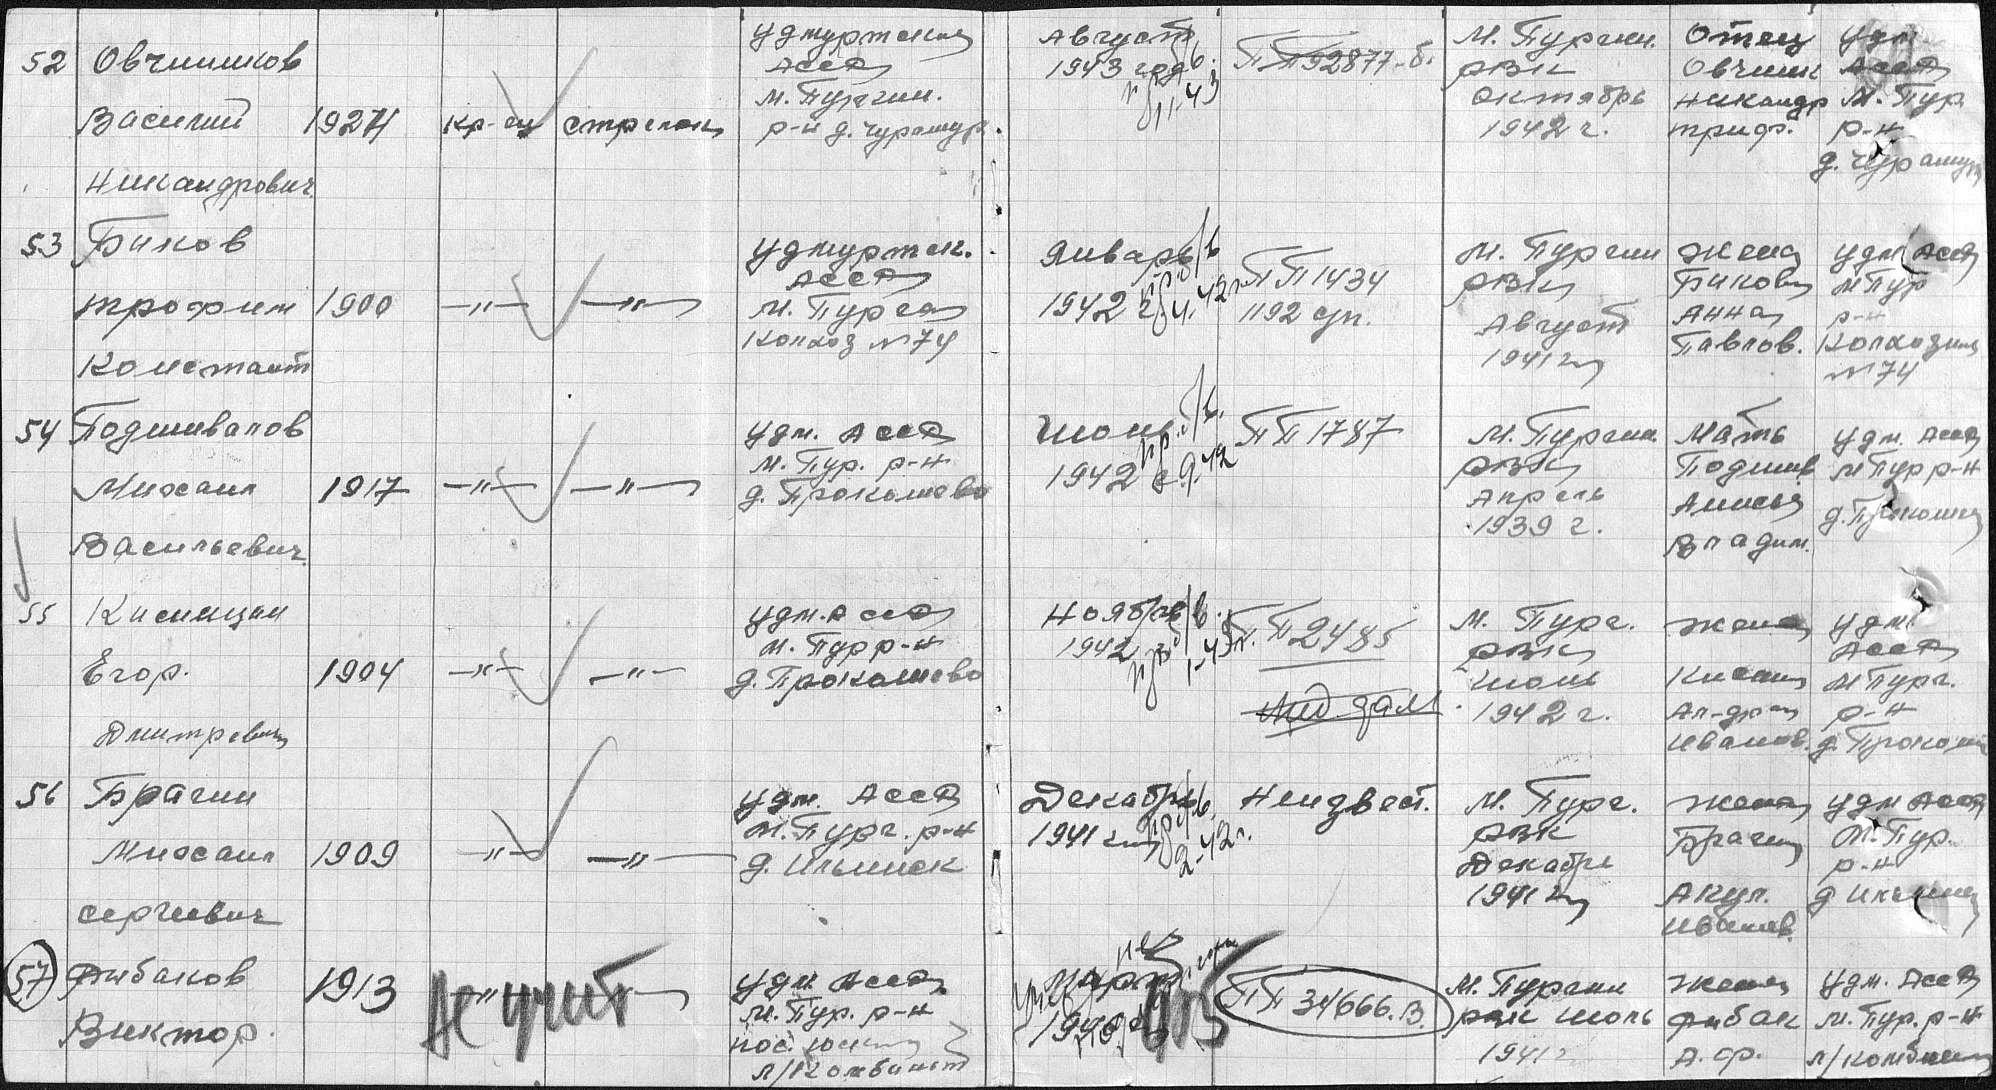 52 Овчинников
Василий 1924 кр-ец стрелок
Никандрович
Удмуртская
АССР
М. Пургин.
р-н д. Чурашур
Август
1943 год
пр. б/в.
11-43
ПП 92877-б.
М. Пургин.
РВК
Октябрь
1942 г.
Отец
Овчинн
Никандр
Триф.
Удм
АССР
М. Пур
р-н
д. Чурашур
53 Биков
Трофим 1900 —"— —"—
Констант
Удмуртск.
АССР
М. Пурга
Колхоз №74
Январь
1942 г.
пр. б/в
4.42 г.
ПП 1434
1192 сп.
М. Пургин
РВК
Август
1941 г
Жена
Бикова
Анна
Павлов.
Удм АССР
М Пур
р-н
Колхоз
№74
54 Подшивалов
Михаил 1917 —"— —"—
Васильевич
Удм. АССР
М. Пур. р-н
д. Прокошево
1942 г.
пр. б/в.
9.42
ПП 1787
М. Пургин.
РВК
Апрель
1939 г.
Мать
Подшив
Анисья
Владим.
Удм. АССР
М Пур р-н
д. Прокошев
55 Кисицин
Егор. 1904 —"— —"—
Дмитревич
Удм. АССР
М. Пур р-н
д. Прокошево
Ноябрь
1942
пр. б/в.
1-43 г.
ПП 2485
М. Пург.
РВК
1942 г.
Жена
Ал-дра
Иванов.
Удм.
АССР
М Пург.
р-н
д. Прокош
56 Брагин
Михаил 1909 —"— —"—
Сергеевич
Удм. АССР
М. Пург. р-н
д. Ильинск
Декабрь
1941 г
пр. б/в.
2-42 г.
Неизвест.
М. Пург.
РВК
Декабрь
1941 г
Жена
Брагин
Акул.
Иванов.
Удм АССР
М. Пур.
р-н
д Ильинск
57 Рибаков 1913
Виктор.
Не учит
Удм. АССР
М. Пур. р-н
пос.
л/комбинат
Март
ПП 34666.В.
М. Пургин
РВК июль
1941 г
Жена
Рибак
А. Ф.
Удм. АССР
М. Пур. р-н
л/комбинат